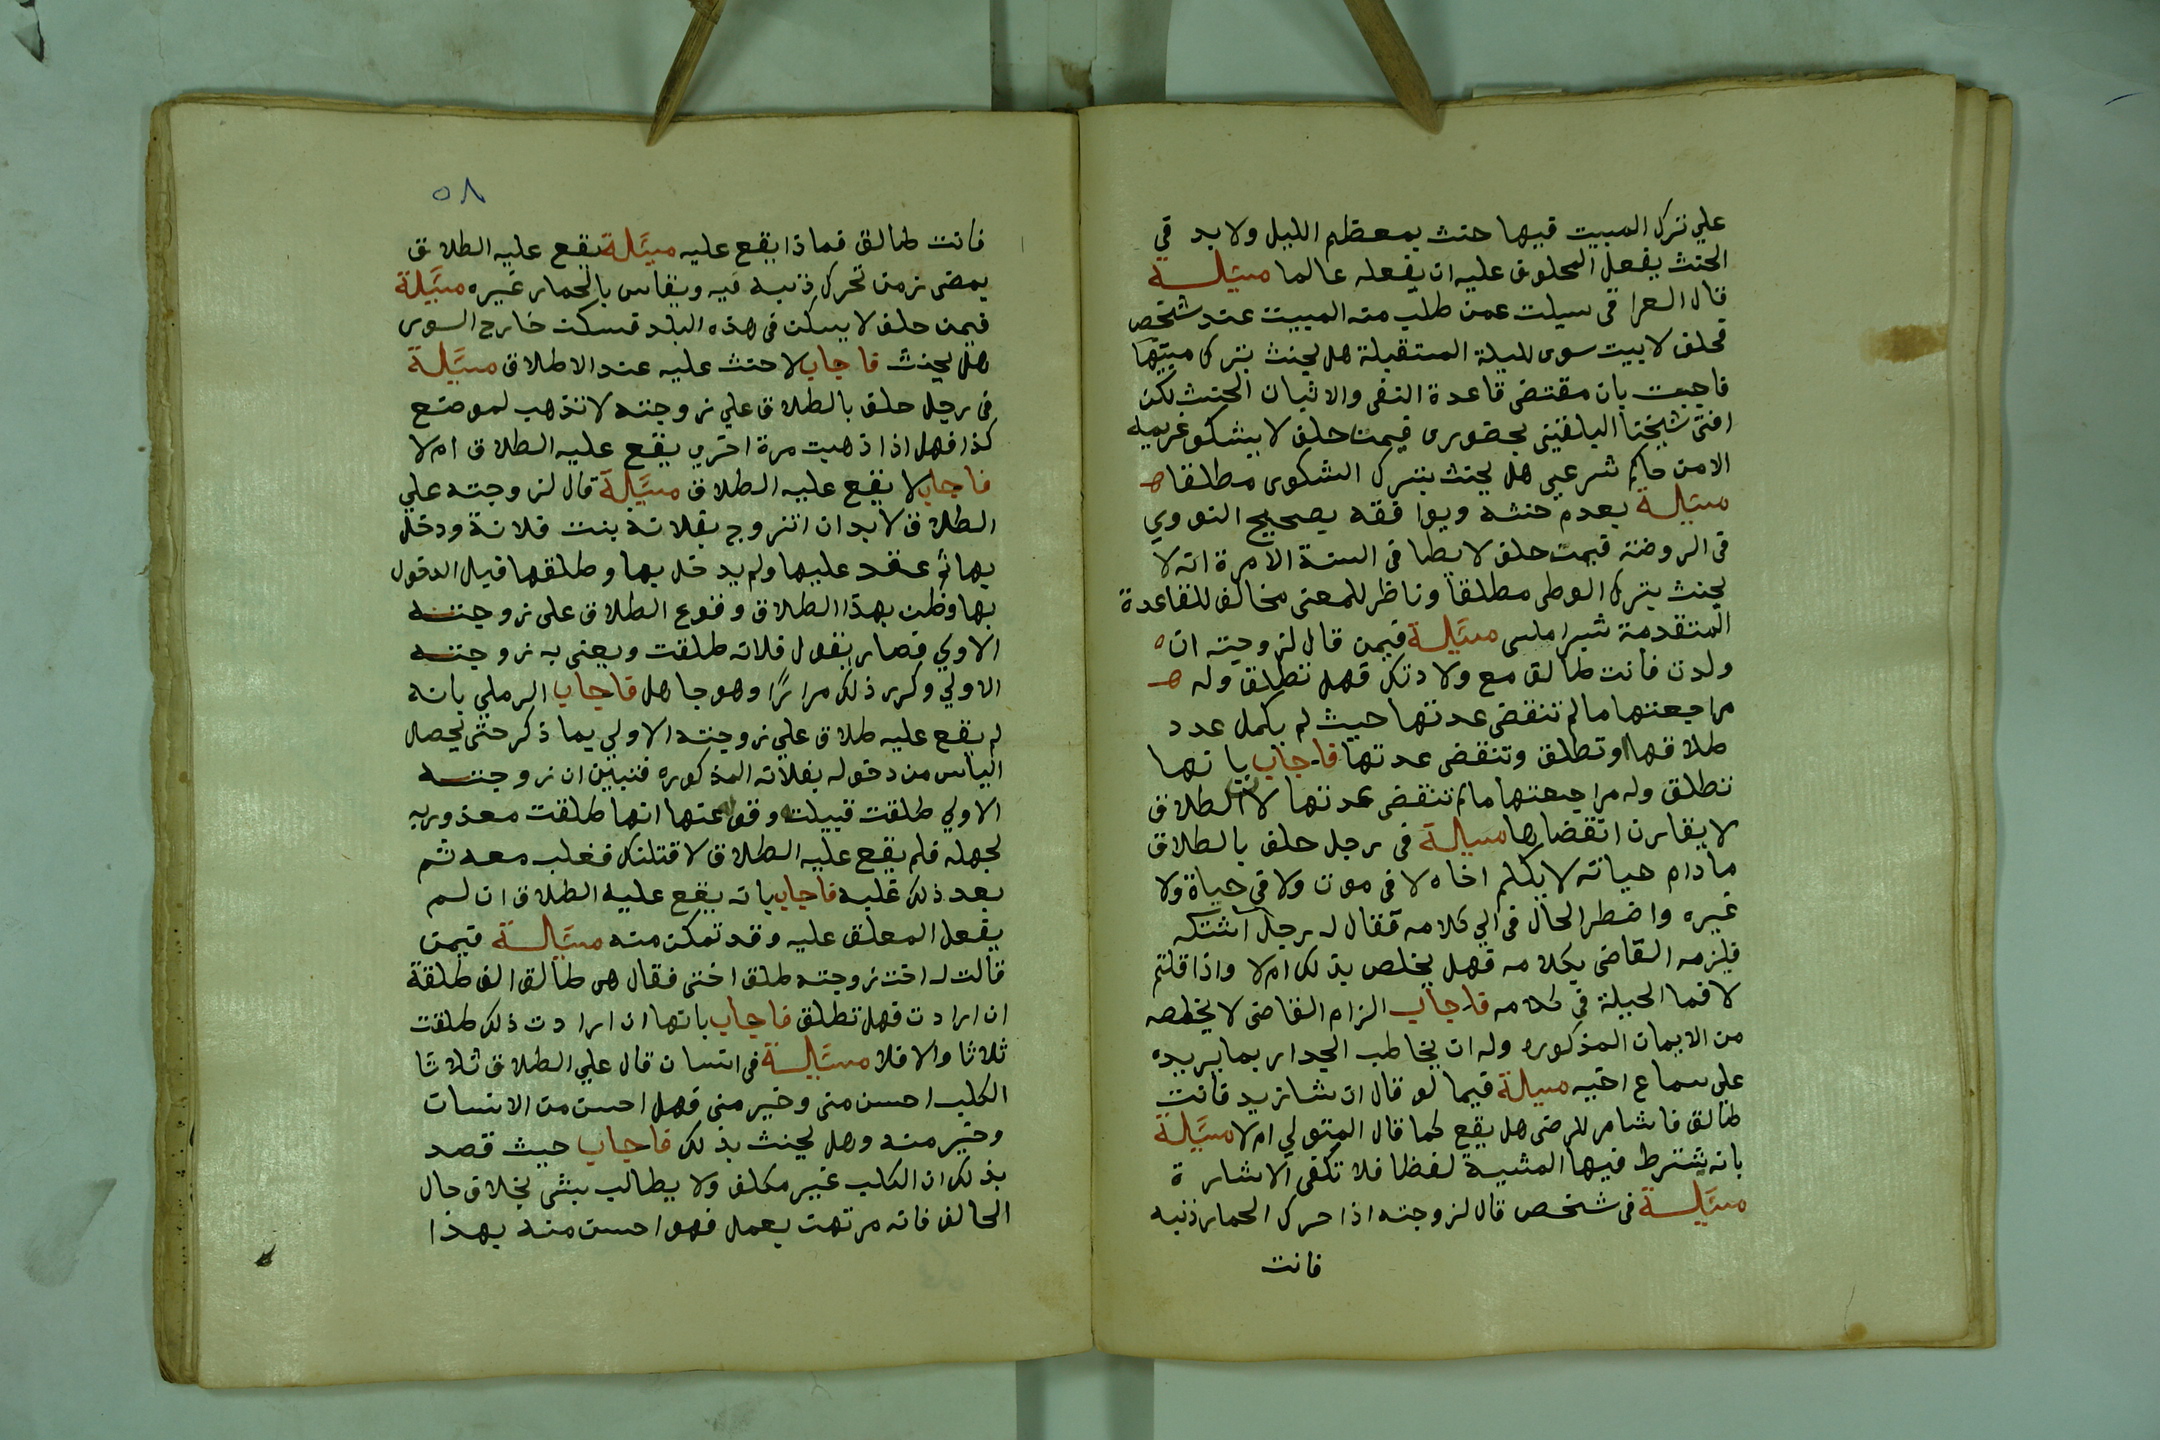 علي ترك المبيت فيها حنث بمعظم الليل ولابد في
الحنث بفعل المحلوف عليه ان يفعله عالما مسيلة
قال العراقي سيلت عمن طلب منه المبيت عند شخص
فحلف لا يبيت سوى لليلة المستقبلة هل يحنث بترك مبيتها
فاجبت بان مقتضى قاعدة النفى والاثبات الحنث لكن
افتى شيخنا البلقينى بحضورى فيمن حلف لا يشكو غريمه
الامن حاكم شرعي هل يحنث بترك الشكوى مطلقا ه
مسيلة بعدم حنثه ويوافقه تصحيح النووي
فى الروضة فيمن حلف لا يطا فى السنة الامرة انه لا
يحنث بترك الوطى مطلقا وناظر للمعنى مخالف للقاعدة
المتقدمة شبراملسى مسيلة فيمن قال لزوجته ان ه
ولدت فانت طالق مع ولادتك فهل تطلق وله ه
مراجعتها مالم تنقضى عدتها حيث لم يكمل عدد
طلاقها او تطلق وتنقضى عدتها فاجاب بانها
تطلق وله مراجعتها مالم تنقضى عدتها لان الطلاق
لا يقارن انقضاها مسيلة فى رجل حلف بالطلاق
مادام حياته لا يكلم اخاه لا فى موت ولا في حياة ولا
غيره واضطر الحال فى الي كلامه فقال له رجل اشتكه
فيلزمه القاضى بكلامه فهل يخلص بذلك ام لا واذا قلتم
لا فما الحيلة في كلامه فاجاب الزام القاضى لا يخلصه
من الايمان المذكوره وله ان يخاطب الجدار بما يريده
على سماع اخيه مسيلة فيما لو قال ان شازيد فانت
طالق فاشار للرضى هل يقع كما قال المتولي ام لا مسيلة
بانه يشترط فيها المشية لفظا فلا تكفى الاشارة
مسيلة فى شخص قال لزوجته اذا حرك الحمار ذنبه
فانت
٥٨
فانت طالق فماذا يقع عليه مسيلة يقع عليه الطلاق
بمضى زمن تحرك ذنبه فيه ويقاس بالحمار غيره مسيلة
فيمن حلف لا يسكن فى هذه البلد فسكن خارج السور
هل يحنث فاجاب لا حنث عليه عند الاطلاق مسيلة
فى رجل حلف بالطلاق علي زوجته لا تذهب لموضع
كذا فهل اذا ذهبت مرة اخري يقع عليه الطلاق ام لا
فاجاب لا يقع عليه الطلاق مسيلة قال لزوجته علي
الطلاق لا بد ان اتزوج بفلانة بنت فلانة ودخل
بها ثم عقد عليها ولم يدخل بها وطلقها قبل الدخول
بها وظن بهذا الطلاق وقوع الطلاق على زوجته
الاولي فصار يقول فلانه طلقت ويعنى به زوجته
الاولي وكرر ذلك مرارًا وهو جاهل فاجاب الرملي بانه
لم يقع عليه طلاق علي زوجته الاولي بما ذكر حتى يحصل
الياس من دخوله بفلانه المذكوره فتبين ان زوجته
الاولي طلقت قبيلته وقوله عنها انها طلقت معذور به
لجهله فلم يقع عليه الطلاق لاقتلنك فغلب معه ثم
بعد ذلك غلبه فاجاب بانه يقع عليه الطلاق ان لم
يفعل المعلق عليه وقد تمكن منه مسيلة فيمن
قالت له اخت زوجته طلق اختى فقال هى طالق الف طلقة
ان ارادت فهل تطلق فاجاب بانها ان ارادت ذلك طلقت
ثلاثا والا فلا مسيلة فى انسان قال علي الطلاق ثلاثا
الكلب احسن منى وخير منى فهل احسن من الانسان
وخير منه وهل يحنث بذلك فاجاب حيث قصد
بذلك ان الكلب غير مكلف ولا يطالب بشى بخلاف حال
الحالف فانه مرتهن بعمل فهو احسن منه بهذا